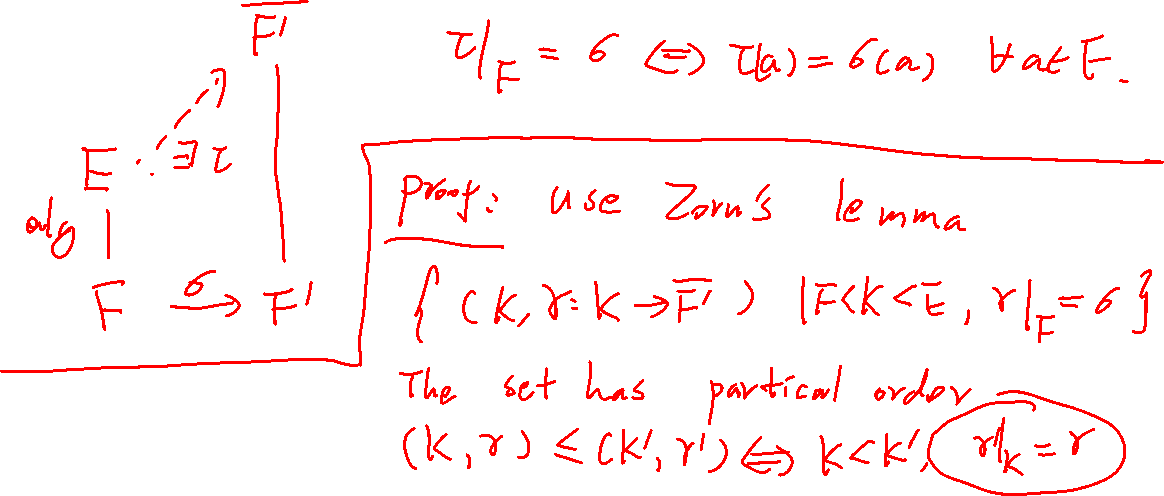 F̅'̅
τ|_F = σ ⟺ τ(a) = σ(a) ∀a∈F.
E ∃τ
alg
F σ→ F'
Proof: use Zorn's lemma
{ (K, γ: K → F̅'̅ ) | F<K<E, γ|_F = σ }
The set has partical order
(K, γ) ≤ (K', γ') ⟺ K<K', γ'|_K = γ